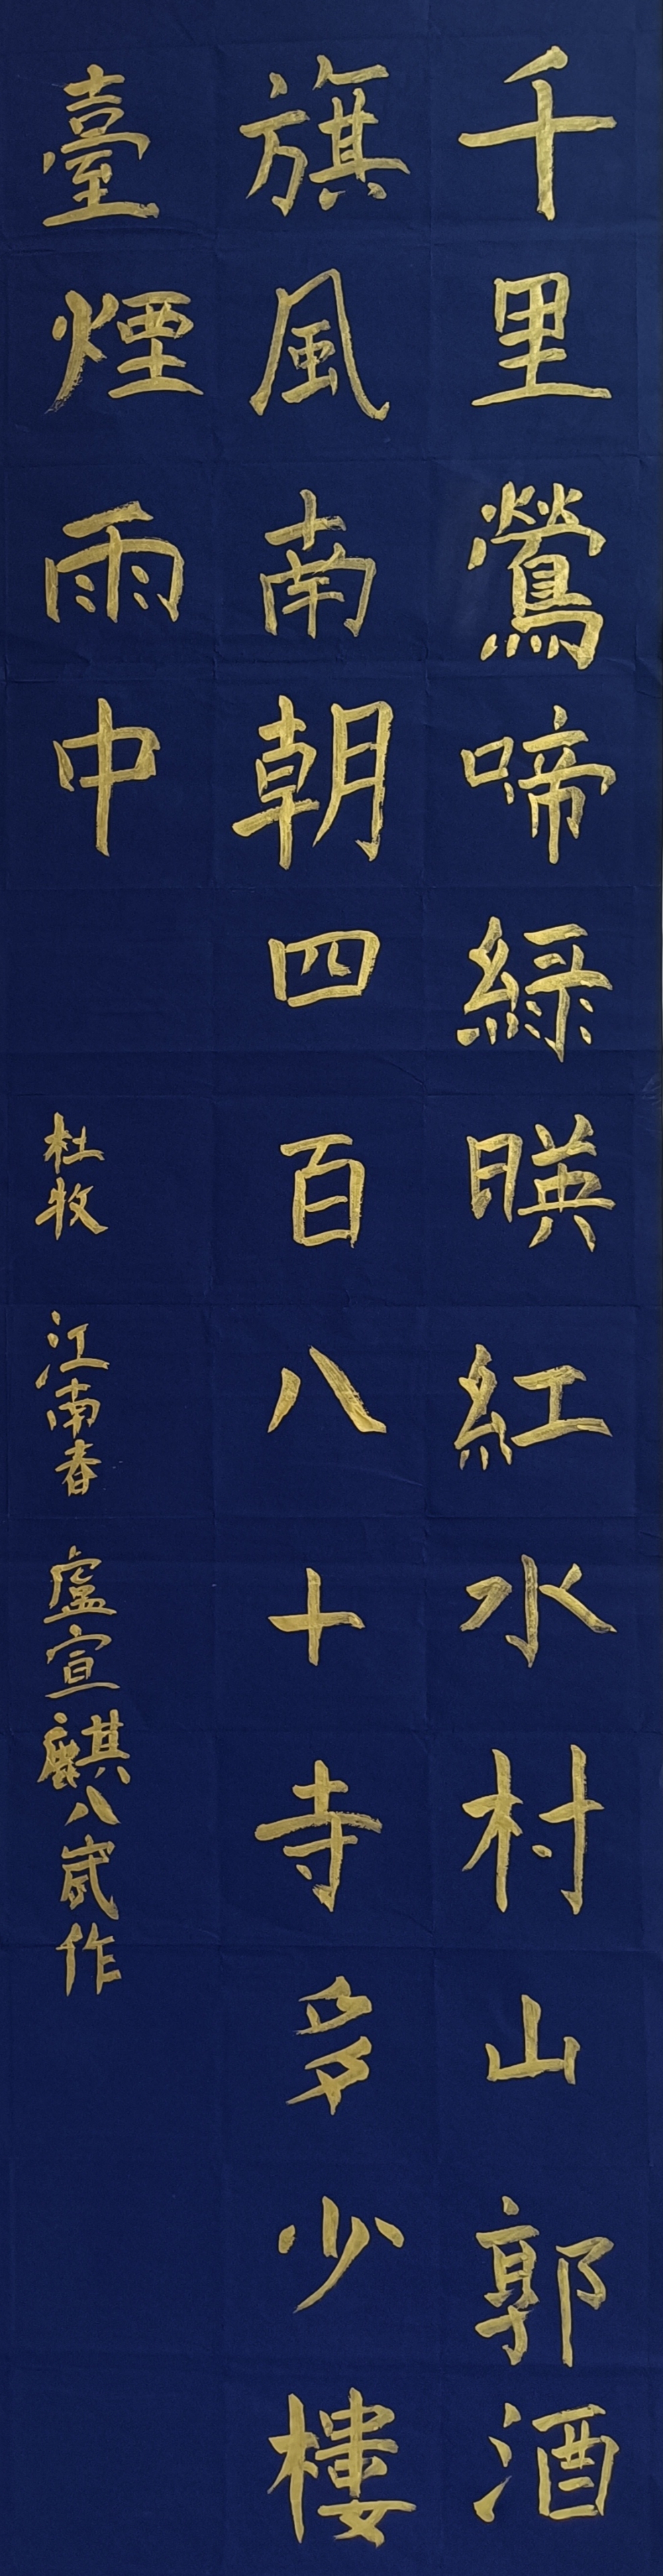 千里鶯啼綠暎紅水村山郭酒
旗風南朝四百八十寺多少樓
臺煙雨中
杜牧 江南春 盧宣麒八歲作